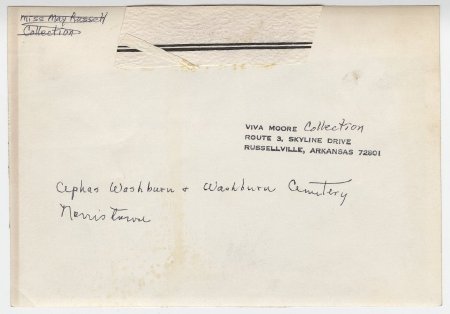 Miss May Russell
Collection
VIVA MOORE Collection
ROUTE 3, SKYLINE DRIVE
RUSSELLVILLE, ARKANSAS 72801
Cephas Washburn & Washburn Cemetery
Norristown